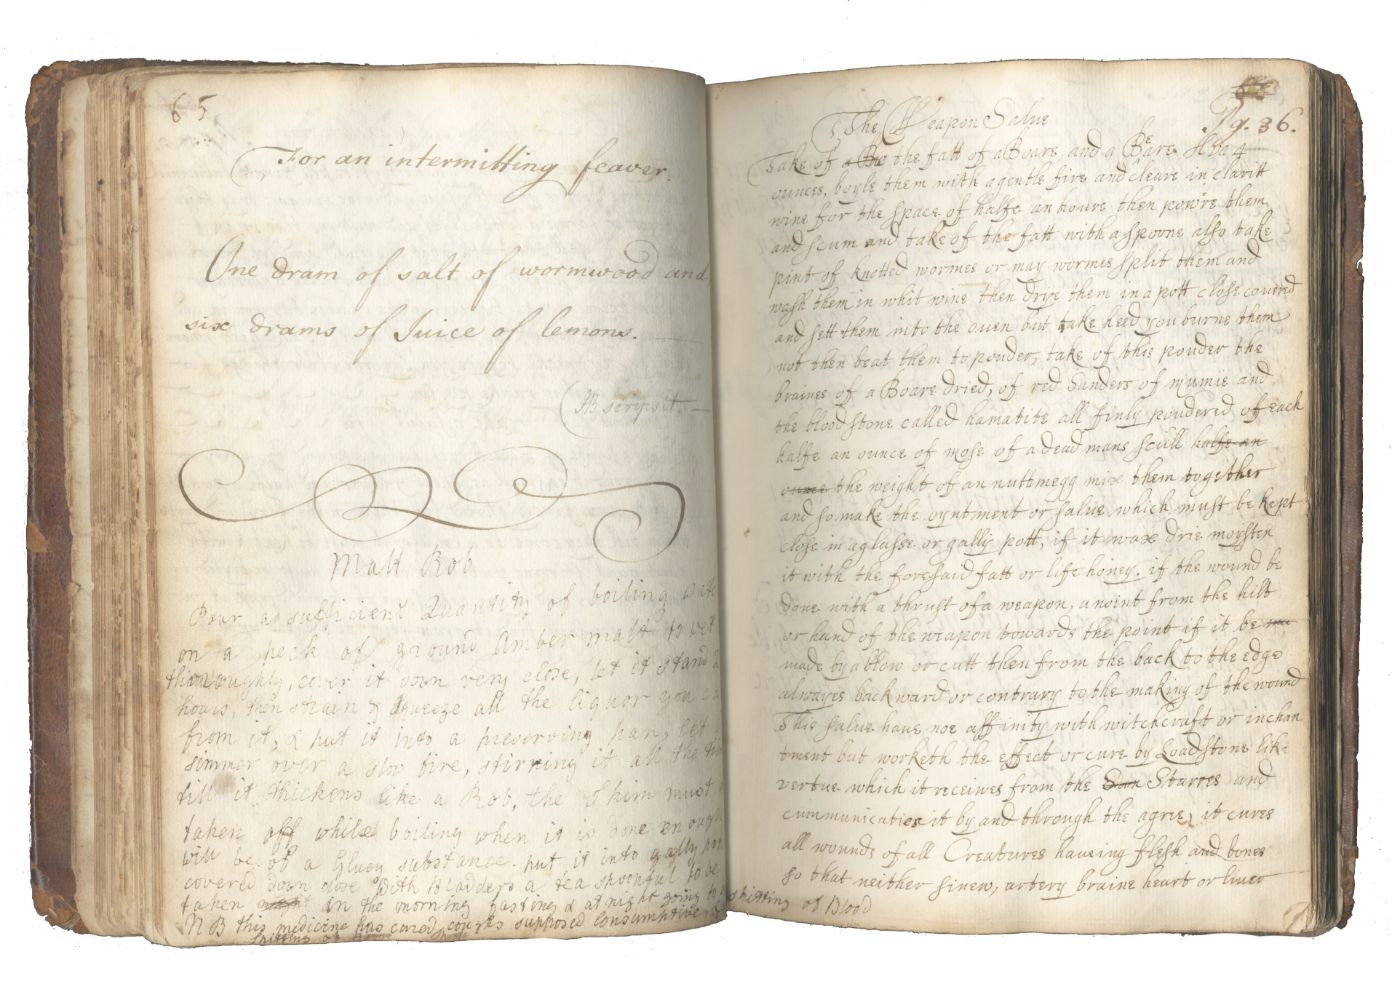 65
For an intermitting feaver.
One dram of salt of wormwood and
six drams of Juice of lemons.
scripsit.
Malt Rob
Pour a sufficient Quantity of boiling wate
on a peck of ground Amber malt to wet
thoroughly, cover it down very close, let it stand 2
hours, then strain & squeeze all the liquor you ca
from it, & put it into a preserving pan, let
simmer over a slow fire, stirring it all the tim
till it thickens like a Rob, the skim must
taken off whilst boiling when it is done enough
will be of a Gluey substance put it into gally pots
covered down close with Bladders a tea spoonful to be
taken in the morning fasting & at night going to
NB this medicine has cured coughs supposed consumptive & spitting of Blood
spitting of
Pg. 36.
The Weapon Salve
Take of the fatt of a Boare, and a Beare of ba 4
ounces, boyle them with a gentle fire and cleare in claritt
wine for the space of halfe an houre then powre them
and scum and take of the fatt with a spoone also take
pint of knotted wormes or may wormes split them and
wash them in whit wine then drye them in a pott close covered
and sett them into the oven but take heed you burne them
not then beat them to pouder, take of this pouder the
braines of a Boare dried, of red Sanders of mumie and
the bloodstone called hamatite all finly poudered of each
halfe an ounce of mose of a dead mans scull halfe an
ounce the weight of an nuttmegg mix them together
and so make the oyntment or salve which must be kept
close in a glasse or gally pott, if it wax drie moysten
it with the foresaid fatt or life honey. if the wound be
done with a thrust of a weapon, anoint from the hilt
or hand of the weapon towards the point if it be
made by a blow or cutt then from the back to the edge
alwayes backward or contrary to the making of the wound
This salve have noe affinity with witchcraft or inchan
tment but worketh the effect or cure by Loadstone like
vertue which it receives from the Starres and
cumunicaties it by and through the agrie, it cures
all wounds of all Creatures haveing flesh and bones
so that neither sinew, artery braine heart or liver